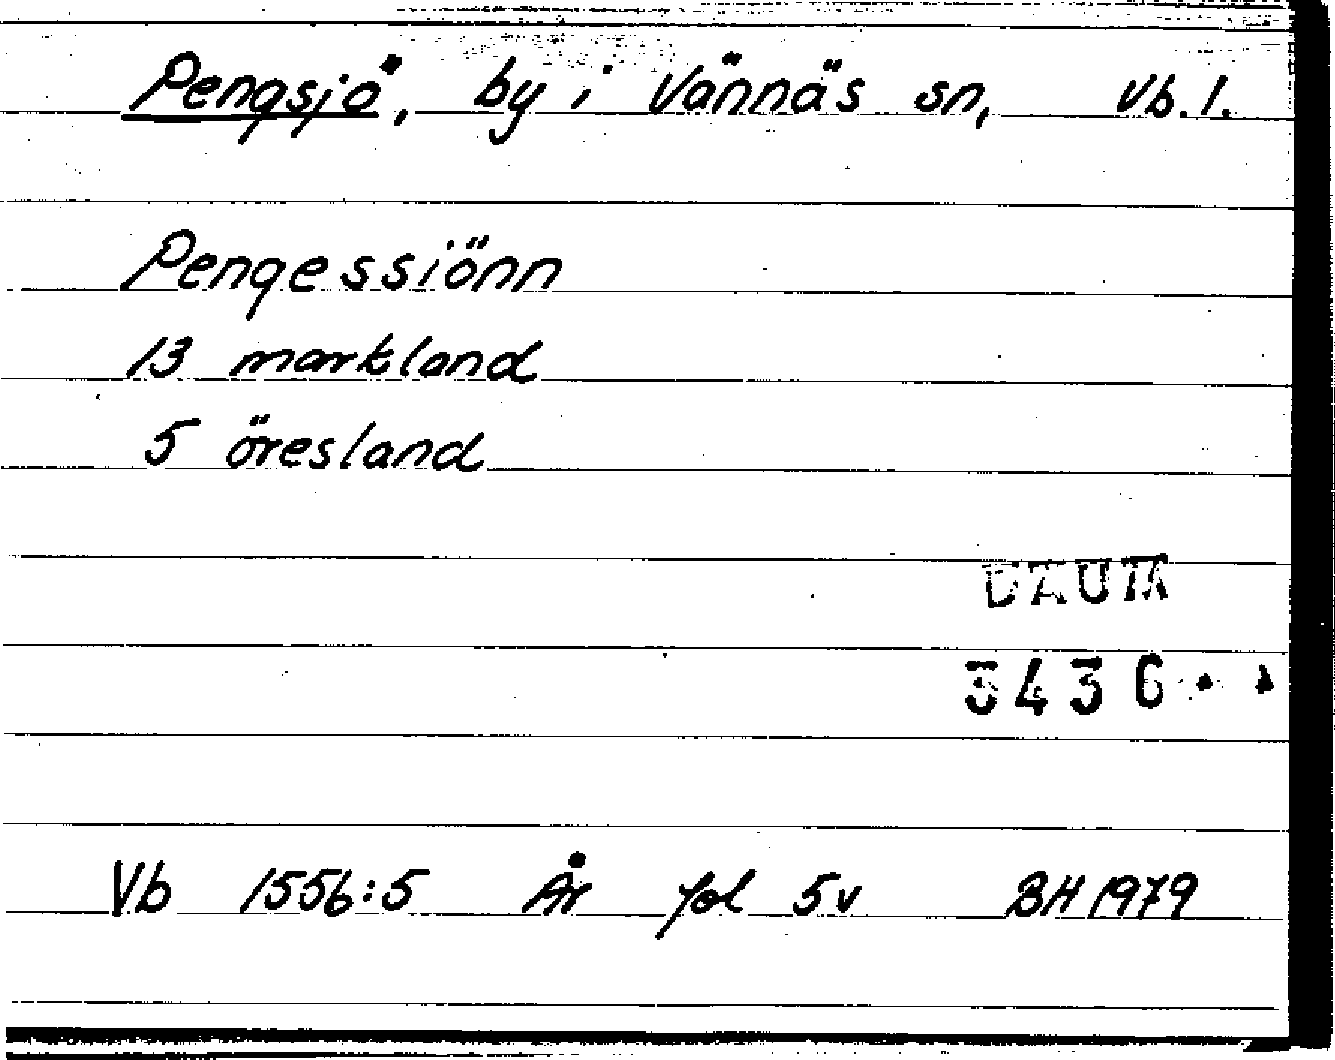 Pengsjö, by i Vännäs sn, Vb. l.
Pengessiönn
13 markland
5 öresland
DAUM
3436
Vb 1556:5 År fol 5v BH 1979